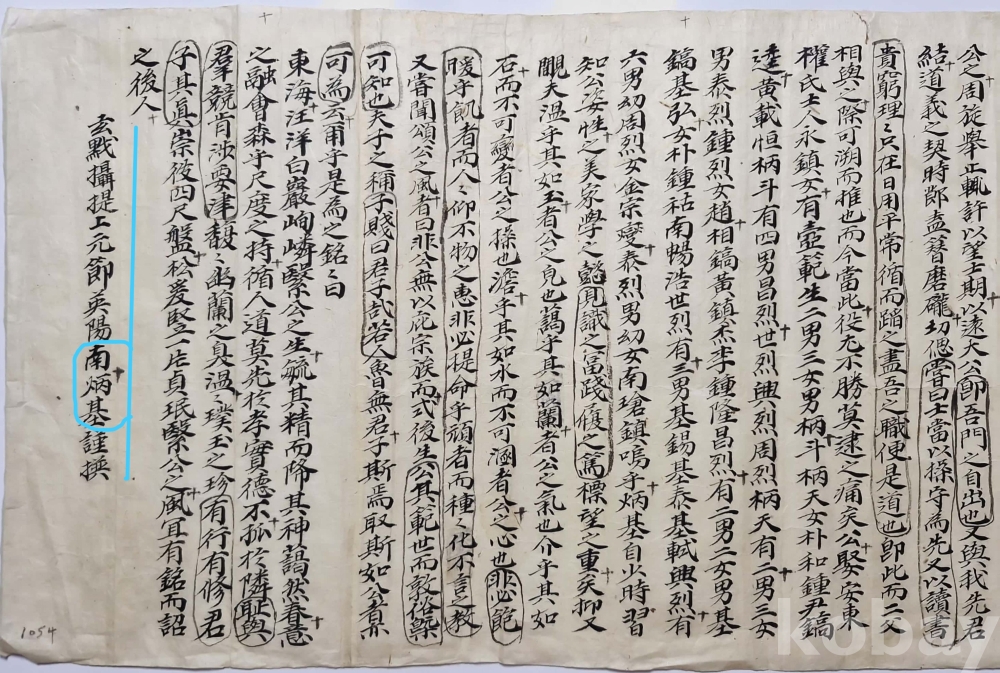 公之周從舉止輒許以望士期以遠大公卽吾門之自出也又與我先君
結道義之契時郎盍簪磨礲切偲嘗曰士當以操守爲先又以讀書
貴窮理〻只在日用平常循而蹈之盡吾之職便是道也卽此而二父
相與之際可溯而推也而今當此役尤不勝莫逮之痛矣公娶安東
權氏士人永鎭女有壼範生二男三女男柄斗柄天女朴和鍾尹鎬
逵黃載恒柄斗有四男昌烈世烈興烈周烈柄天有二男三女
男泰烈鍾烈女趙相鎬黃鎭杰李鍾隆昌烈有二男二女男基
鎬基弘女朴鍾祜南暢浩世烈有三男基錫基泰基軾興烈有
六男幼周烈女金宗燮泰烈男幼女南瑲鎭嗚乎炳基自少時習
知公姿性之美家學之懿見識之富踐履之篤標望之重矣抑又
覸夫溫乎其如玉者公之皃也藹乎其如蘭者公之氣也介乎其如
石而不可變者公之操也澹乎其如水而不可溷者公之心也非必範
暖乎飢者而人〻仰不物之惠非必提命乎頑者而種〻化不言之敎
又嘗聞頌公之風者曰非公無以庇宗族而式後生公其範世而敦俗槩
可知也夫子之稱子賤曰君子哉若人魯無君子斯焉取斯如公者亦
可爲云爾乎是爲之銘〻曰
東海汪洋白巖峋嶙繄公之生毓其精而降其神藹然春意
之融會森乎尺度之持循人道莫先於孝實德不孤於隣恥與
羣競肯浼要津馥〻幽蘭之臭溫〻璞玉之珍有行有修君
子其眞崇彼四尺盤松爰竪一片貞珉繄公之風宜有銘而詔
之後人
玄黓攝提上元節英陽南炳基謹撰
1054
kobay